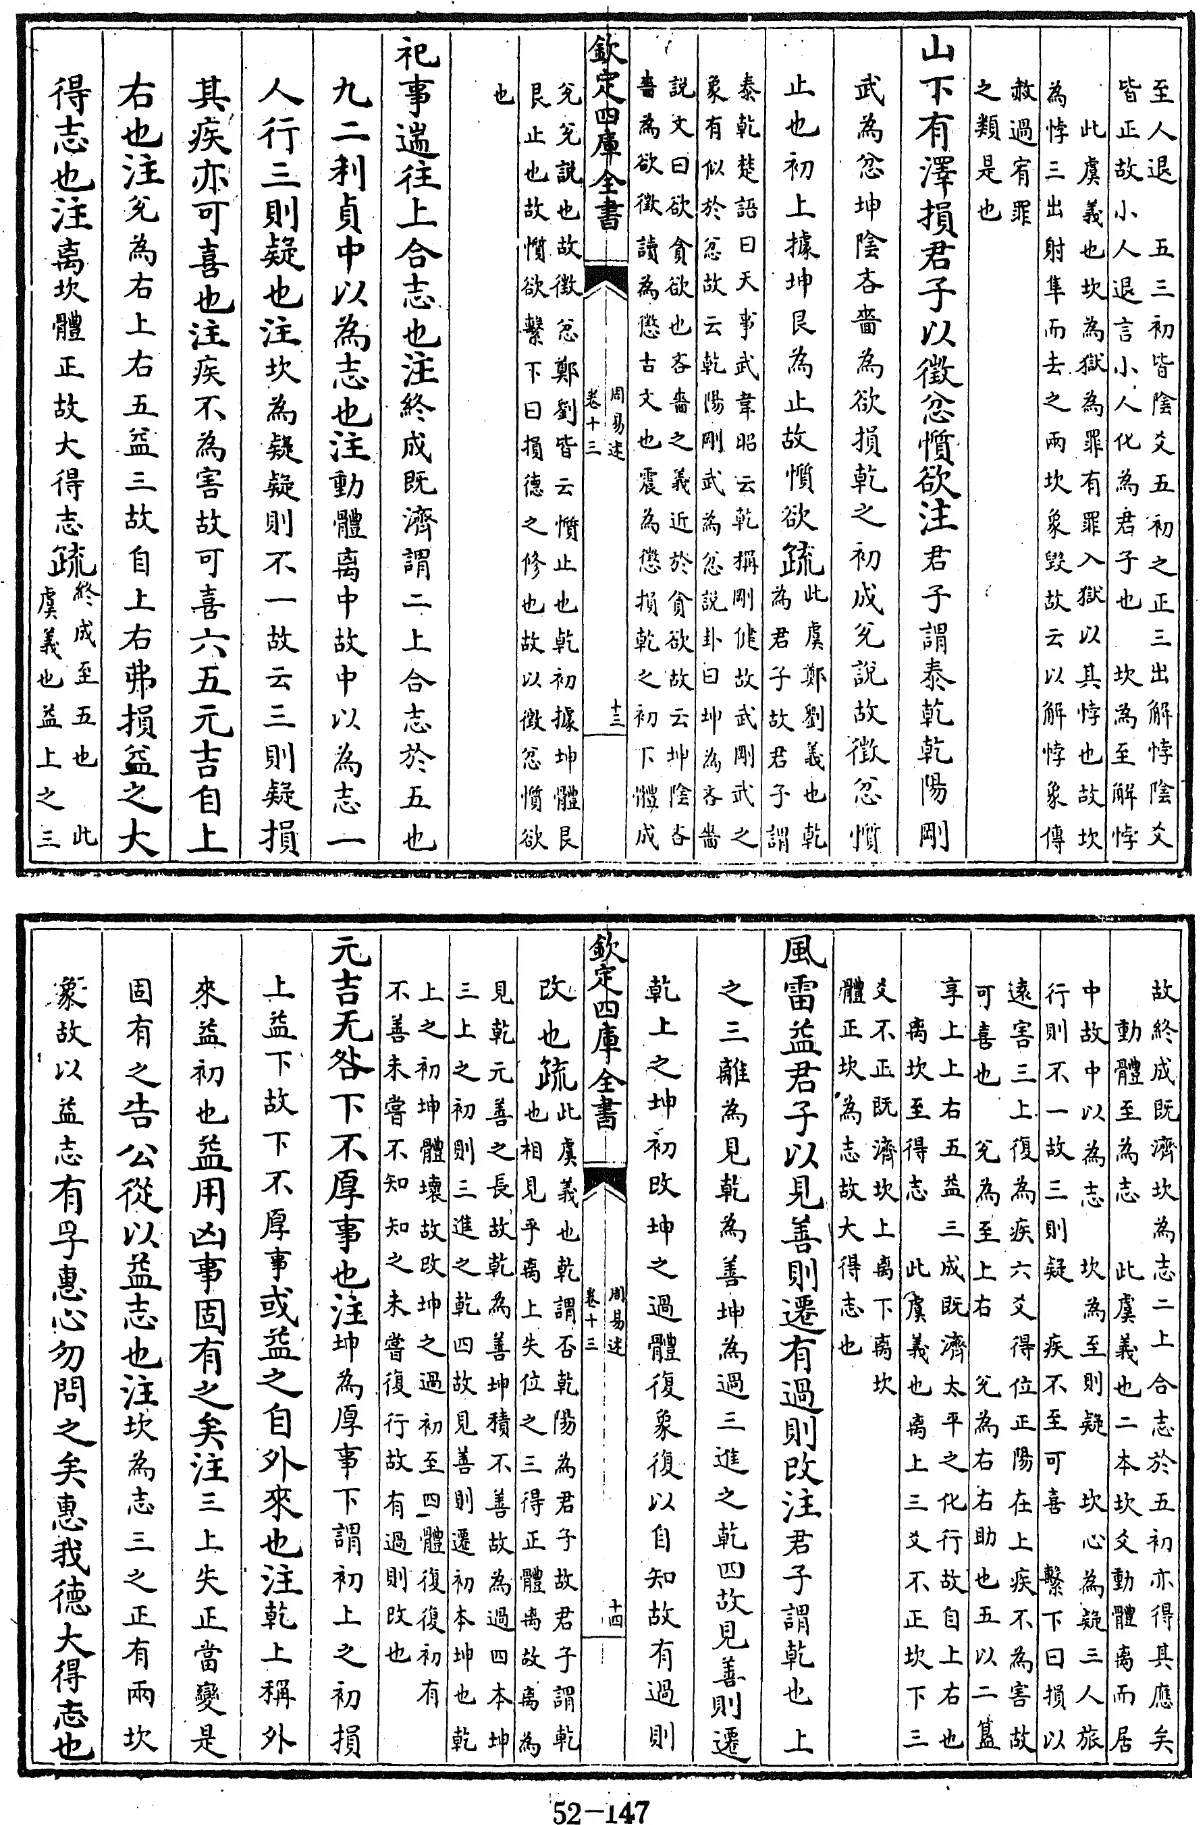 至人退　五三初皆陰爻五初之正三出解悖陰爻
皆正故小人退言小人化為君子也　坎為至解悖
此虞義也坎為獄為罪有罪入獄以其悖也故坎
為悖三出射隼而去之兩坎象毀故云以解悖象傳
赦過宥罪
之類是也
山下有澤損君子以徵忿懫欲注君子謂泰乾乾陽剛
武為忿坤陰吝嗇為欲損乾之初成兌說故徵忿懫
止也初上據坤艮為止故懫欲疏此虞鄭劉義也乾
為君子故君子謂
泰乾楚語曰天事武韋昭云乾稱剛健故武剛武之
象有似於忿故云乾陽剛武為忿說卦曰坤為吝嗇
說文曰欲貪欲也吝嗇之義近於貪欲故云坤陰吝
嗇為欲徵讀為懲古文也震為懲損乾之初下體成
欽定四庫全書
周易述
卷十三
十三
兌兌說也故徵忿鄭劉皆云懫止也乾初據坤體艮
艮止也故懫欲繫下曰損德之修也故以徵忿懫欲
也
祀事遄往上合志也注終成既濟謂二上合志於五也
九二利貞中以為志也注動體离中故中以為志一
人行三則疑也注坎為疑疑則不一故云三則疑損
其疾亦可喜也注疾不為害故可喜六五元吉自上
右也注兌為右上右五益三故自上右弗損益之大
得志也注离坎體正故大得志疏終成至五也　此
虞義也益上之三
故終成既濟坎為志二上合志於五初亦得其應矣
動體至為志　此虞義也二本坎爻動體离而居
中故中以為志　坎為至則疑　坎心為疑三人旅
行則不一故三則疑　疾不至可喜　繫下曰損以
遠害三上復為疾六爻得位正陽在上疾不為害故
可喜也　兌為至上右　兌為右右助也五以二簋
享上上右五益三成既濟太平之化行故自上右也
离坎至得志　此虞義也离上三爻不正坎下三
爻不正既濟坎上离下离坎
體正坎為志故大得志也
風雷益君子以見善則遷有過則改注君子謂乾也上
之三離為見乾為善坤為過三進之乾四故見善則遷
乾上之坤初改坤之過體復象復以自知故有過則
欽定四庫全書
周易述
卷十三
十四
改也疏此虞義也乾謂否乾陽為君子故君子謂乾
也相見乎离上失位之三得正體离故离為
見乾元善之長故乾為善坤積不善故為過四本坤
三上之初則三進之乾四故見善則遷初本坤也乾
上之初坤體壞故改坤之過初至四體復復初有
不善未嘗不知知之未嘗復行故有過則改也
元吉无咎下不厚事也注坤為厚事下謂初上之初損
上益下故下不厚事或益之自外來也注乾上稱外
來益初也益用凶事固有之矣注三上失正當變是
固有之告公從以益志也注坎為志三之正有兩坎
象故以益志有孚惠心勿問之矣惠我德大得志也
52-147